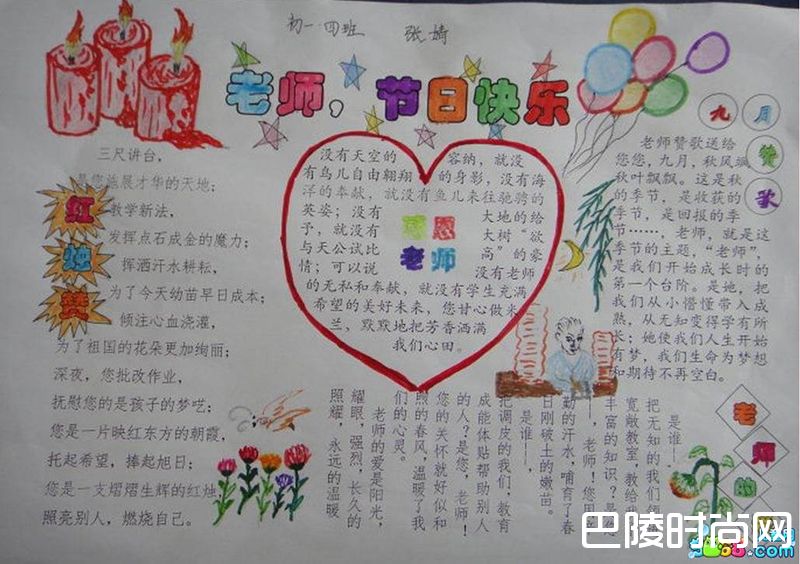 初一四班 张婧
老师，节日快乐
红烛赞
三尺讲台，
是您施展才华的天地；
教学新法，
发挥点石成金的魔力；
挥洒汗水耕耘，
为了今天幼苗早日成本；
倾注心血浇灌，
为了祖国的花朵更加绚丽；
深夜，您批改作业，
抚慰您的是孩子的梦呓；
您是一片映红东方的朝霞，
托起希望，捧起旭日；
您是一支熠熠生辉的红烛，
照亮别人，燃烧自己。
感恩
老师
没有天空的 容纳，就没
有鸟儿自由翱翔 的身影，没有海
洋的奉献，就没有鱼儿来往驰骋的
英姿；没有 大地的给
予，就没有 大树“欲
与天公试比 高”的豪
情；可以说 没有老师
的无私和奉献，就没有学生充满
希望的美好未来，您甘心做米
兰，默默地把芳香洒满
我们心田。
九月赞歌
老师赞歌送给
您您，九月，秋风飒
秋叶飘飘。这是秋
的季节，是收获的
季节，是回报的季
节……，老师，就是这
季节的主题，“老师”，
是我们开始成长时的
第一个台阶。是她，把
我们从小懵懂带入成
熟，从无知变得学有所
长；她使我们人生开始
有梦，我们生命为梦想
和期待不再空白。
老师的
是谁——，
把无知的我们领
宽敞教室，教给
丰富的知识？是您
——，老师！您用
勤的汗水，哺育了春
日刚破土的嫩苗。
是谁——，
把调皮的我们，教育
成能体贴帮助别人
的人？是您，老师！
您的关怀就好似和
煦的春风，温暖了我
们的心灵。
老师的爱是阳光，
耀眼，强烈，长久的
照耀，永远的温暖
巴陵时尚网
.com